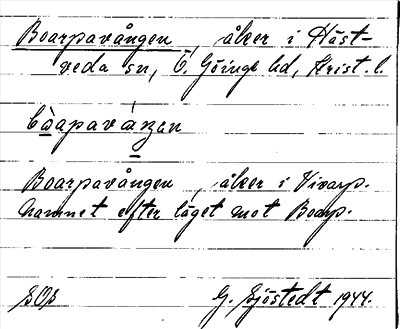 Boarpavången, åker i Häst-
veda sn, Ö. Göinge hd, Krist. l.
bòapaváŋen
Boarpavången, åker i Vivarp.
Namnet efter läget mot Boarp.
SOS G. Sjöstedt 1944.